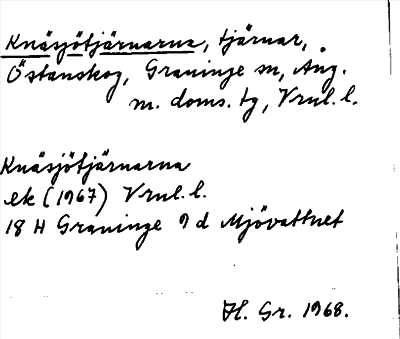 Knäsjötjärnarna, tjärnar,
Östanskog, Graninge sn, Ång.
m. doms. tg, Vrnl. l.
Knäsjötjärnarna
ek (1967) Vrnl. l.
18 H Graninge 9 d Mjövattnet
H. Gr. 1968.